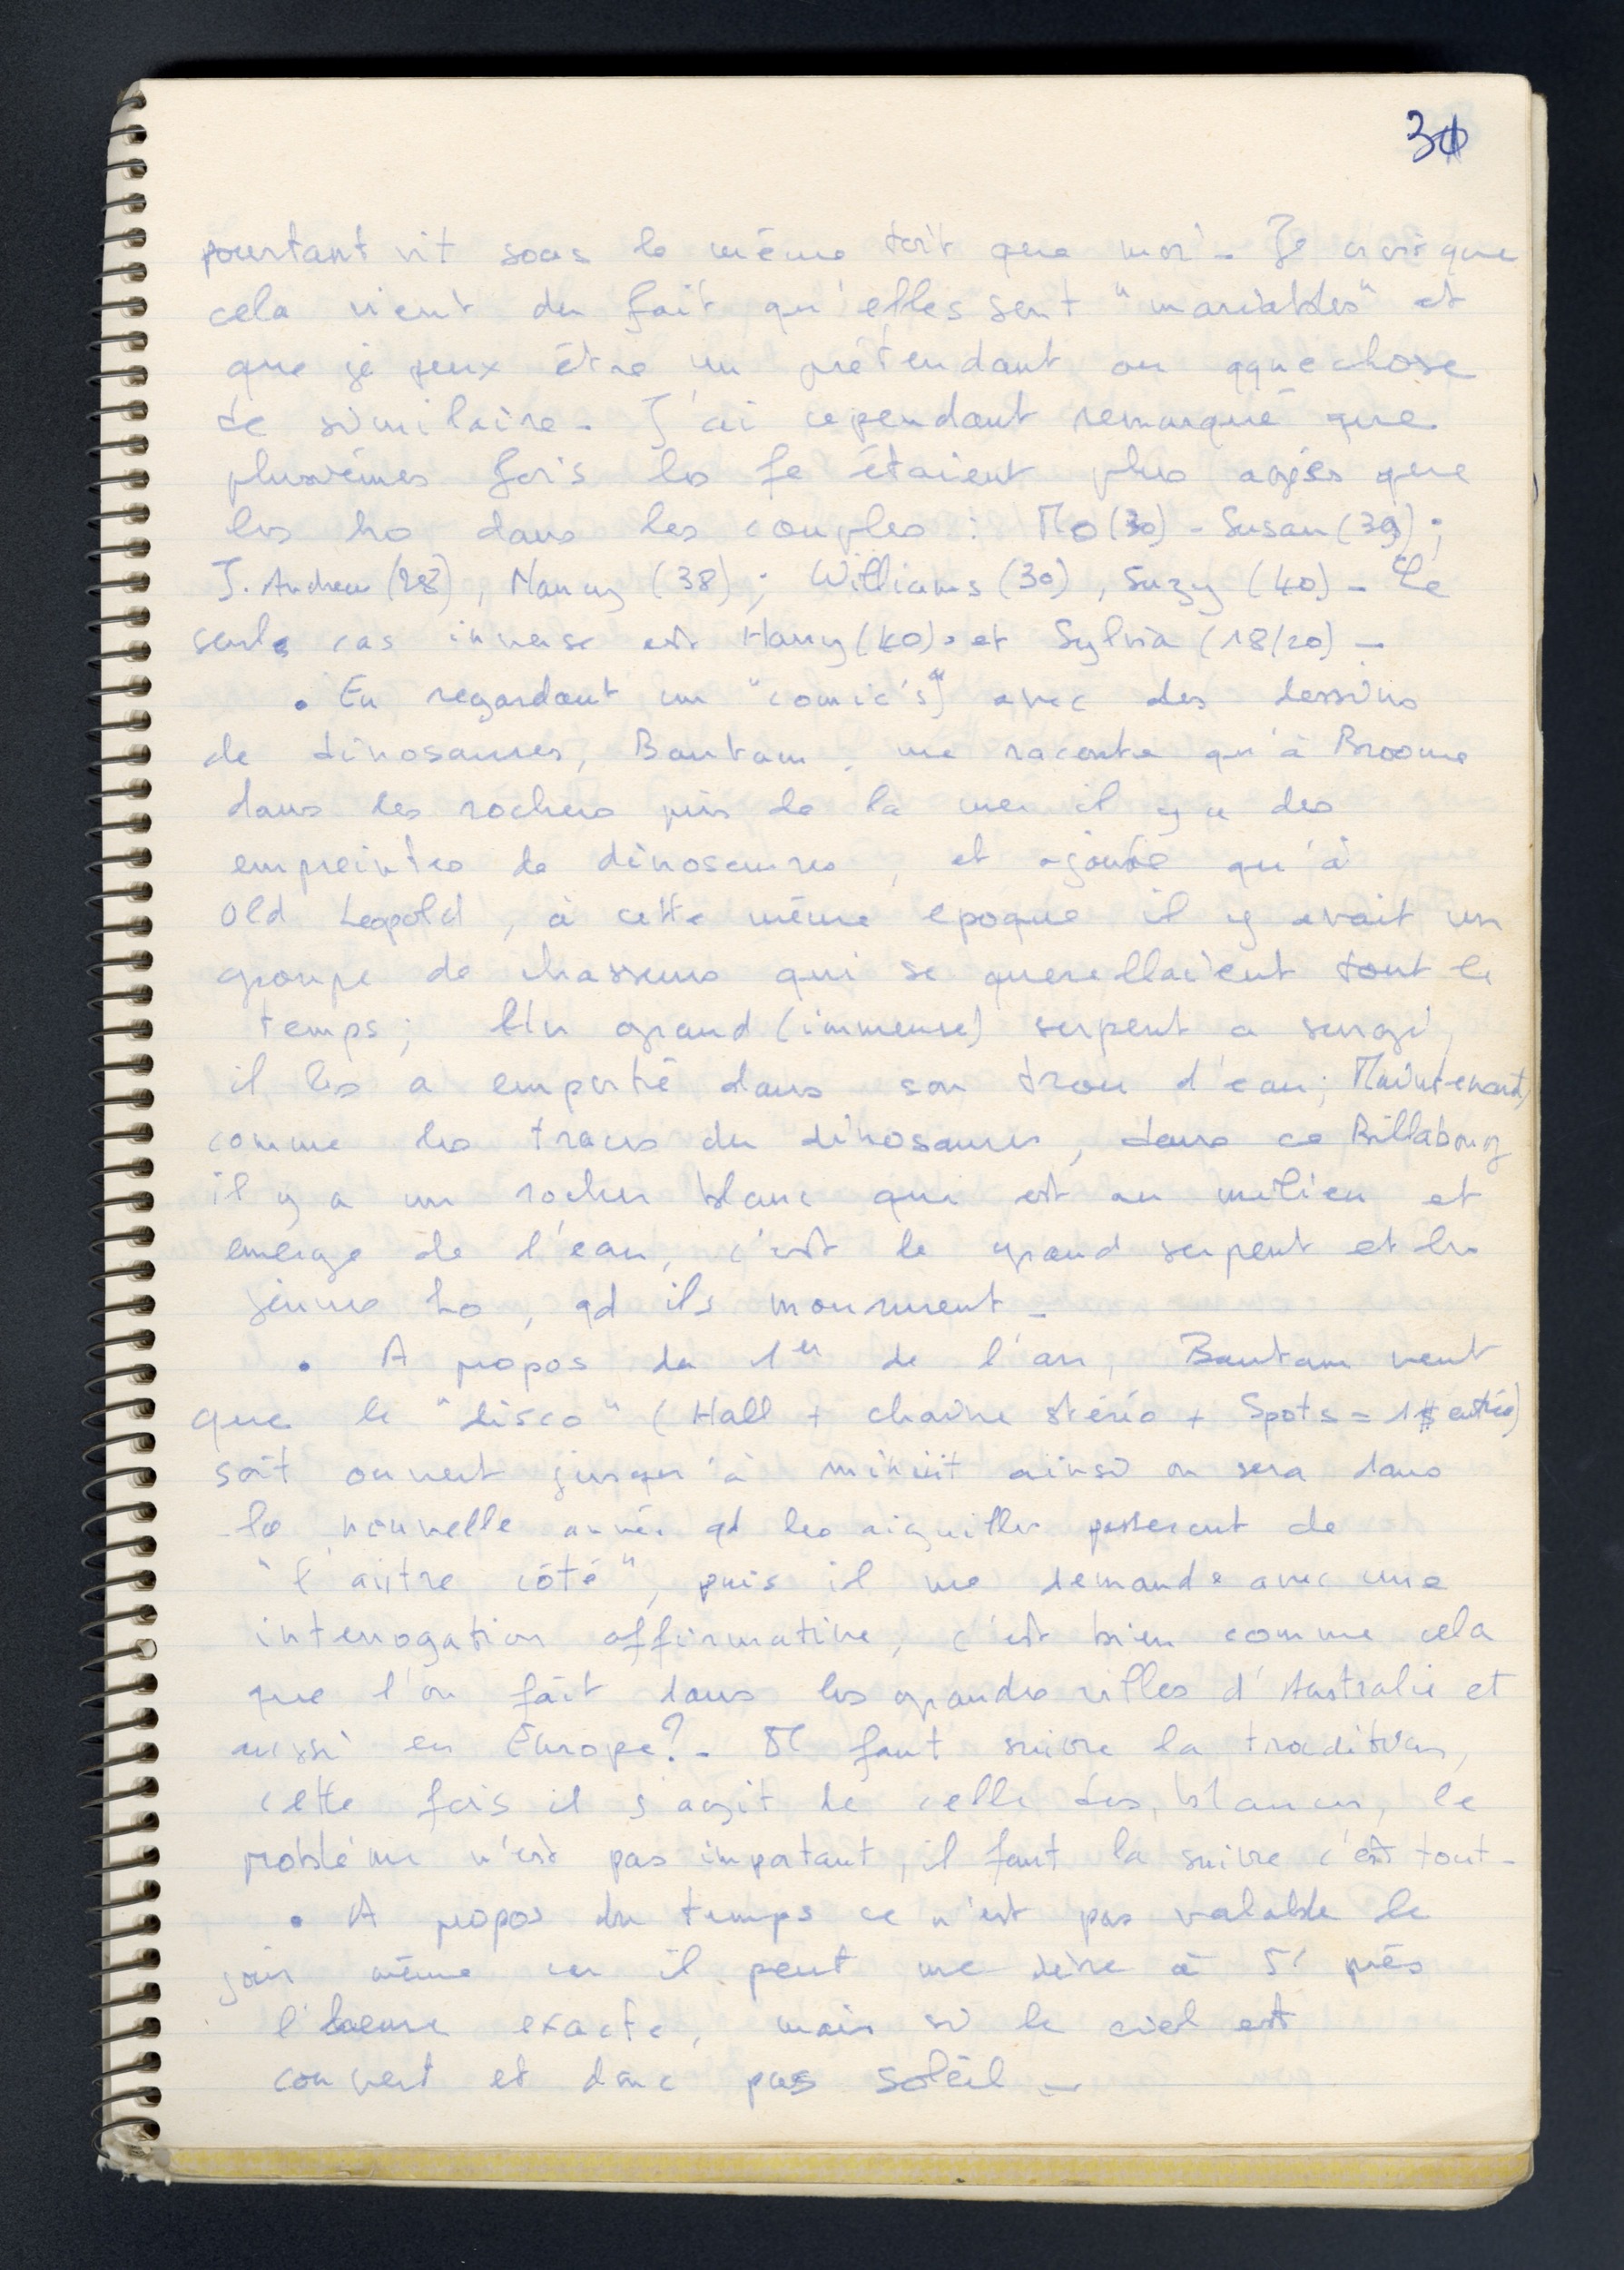 30
pourtant vit sous le même toit que moi - Je crois que
cela vient du fait qu'elles sont "mariables" et
que je peux être un prétendant ou qquechose
de similaire - J'ai cependant remarqué que
plusieures fois les fe étaient plus agées que
les ho dans les couples : Mo (30) - Susan (39) ;
J. Andrew (28), Nancy (38) ; Williams (30), Suzy (40) - Le
seule cas inverse est Harry (40) et Sylvia (18/20) -
• En regardant un "comic's" avec des dessins
de dinosaures, Bantam, me raconte qu'à Broome
dans les rochers près de la mer il y a des
empreintes de dinosaures, et ajoute qu'à
Old Leopold, à cette même epoque il y avait un
groupe de chasseurs qui se querellaient tout le
temps ; Un grand (immense) serpent a surgi,
il les a emporté dans son trou d'eau ; Maintenant,
comme les traces du dinosaures, dans ce Billabong
il y a un rocher blanc qui est au milieu et
emerge de l'eau, c'est le grand serpent et les
jeunes ho, qd ils moururent -
• A propos du 1er de l'an, Bantam veut
que le "disco" (Hall + chaîne stéréo + Spots = 1$ entrée)
soit ouvert jusqu'à minuit ainsi on sera dans
la nouvelle année qd les aiguilles passeront de
"l'autre côté", puis il me demande avec une
interrogation affirmative, c'est bien comme cela
que l'on fait dans les grandes villes d'Australie et
aussi en Europe ? - Il faut suivre la tradition,
cette fois il s'agit de celle des blancs, le
problème n'est pas important, il faut la suivre c'est tout -
• A propos du temps ce n'est pas valable le
jour même car il peut me dire à 5' près
l'heure exacte, mais si le ciel est
couvert et donc pas soleil -